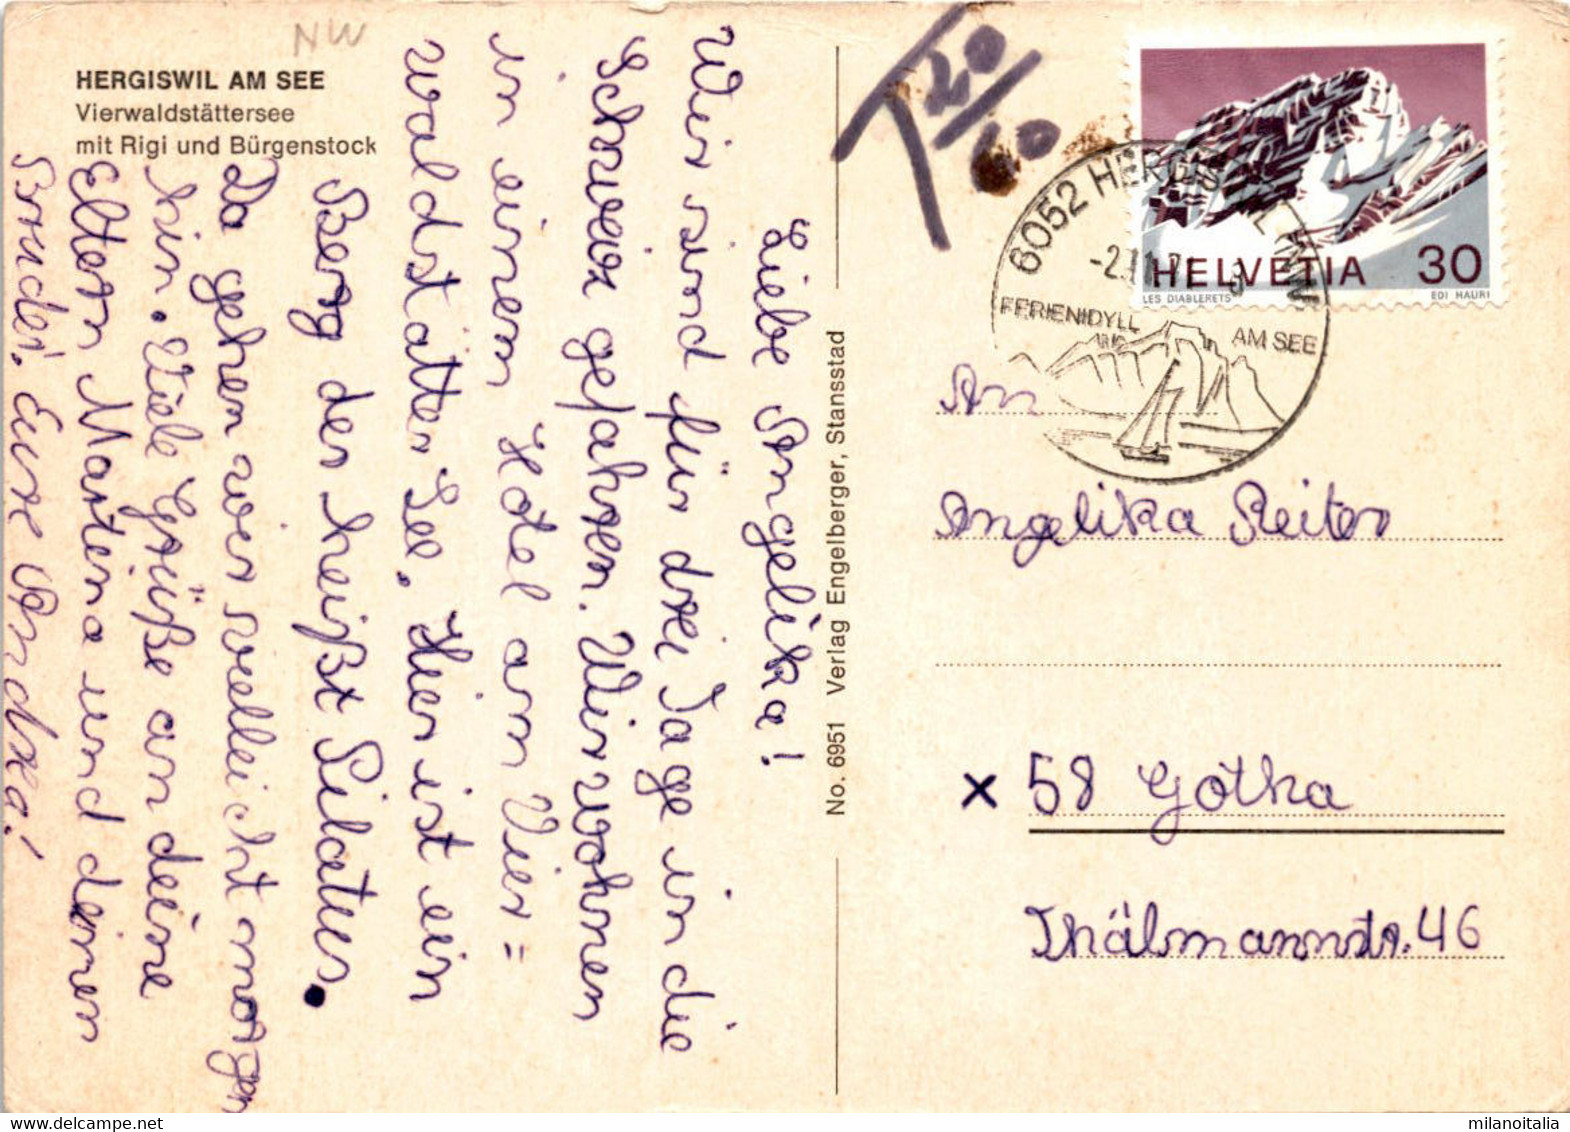 NW
HERGISWIL AM SEE
Vierwaldstättersee
mit Rigi und Bürgenstock
Liebe Angelika!
Wir sind für drei Tage in die
Schweiz gefahren. Wir wohnen
in einem Hotel am Vier=
waldstätter See. Hier ist ein
Berg der heißt Pilatus.
Da gehen wir vielleicht morgen
hin. Viele Grüße an deine
Eltern Martina und deinen
Bruder. Eure Andrea!
No. 6951 Verlag Engelberger, Stansstad
T 20/60
6052 HERGISWIL NW
-2.11.7
FERIENIDYLL AM SEE
HELVETIA 30
LES DIABLERETS EDI HAURI
An
Angelika Reiter
x 58 Gotha
Thälmannstr. 46
milanoitalia
www.delcampe.net